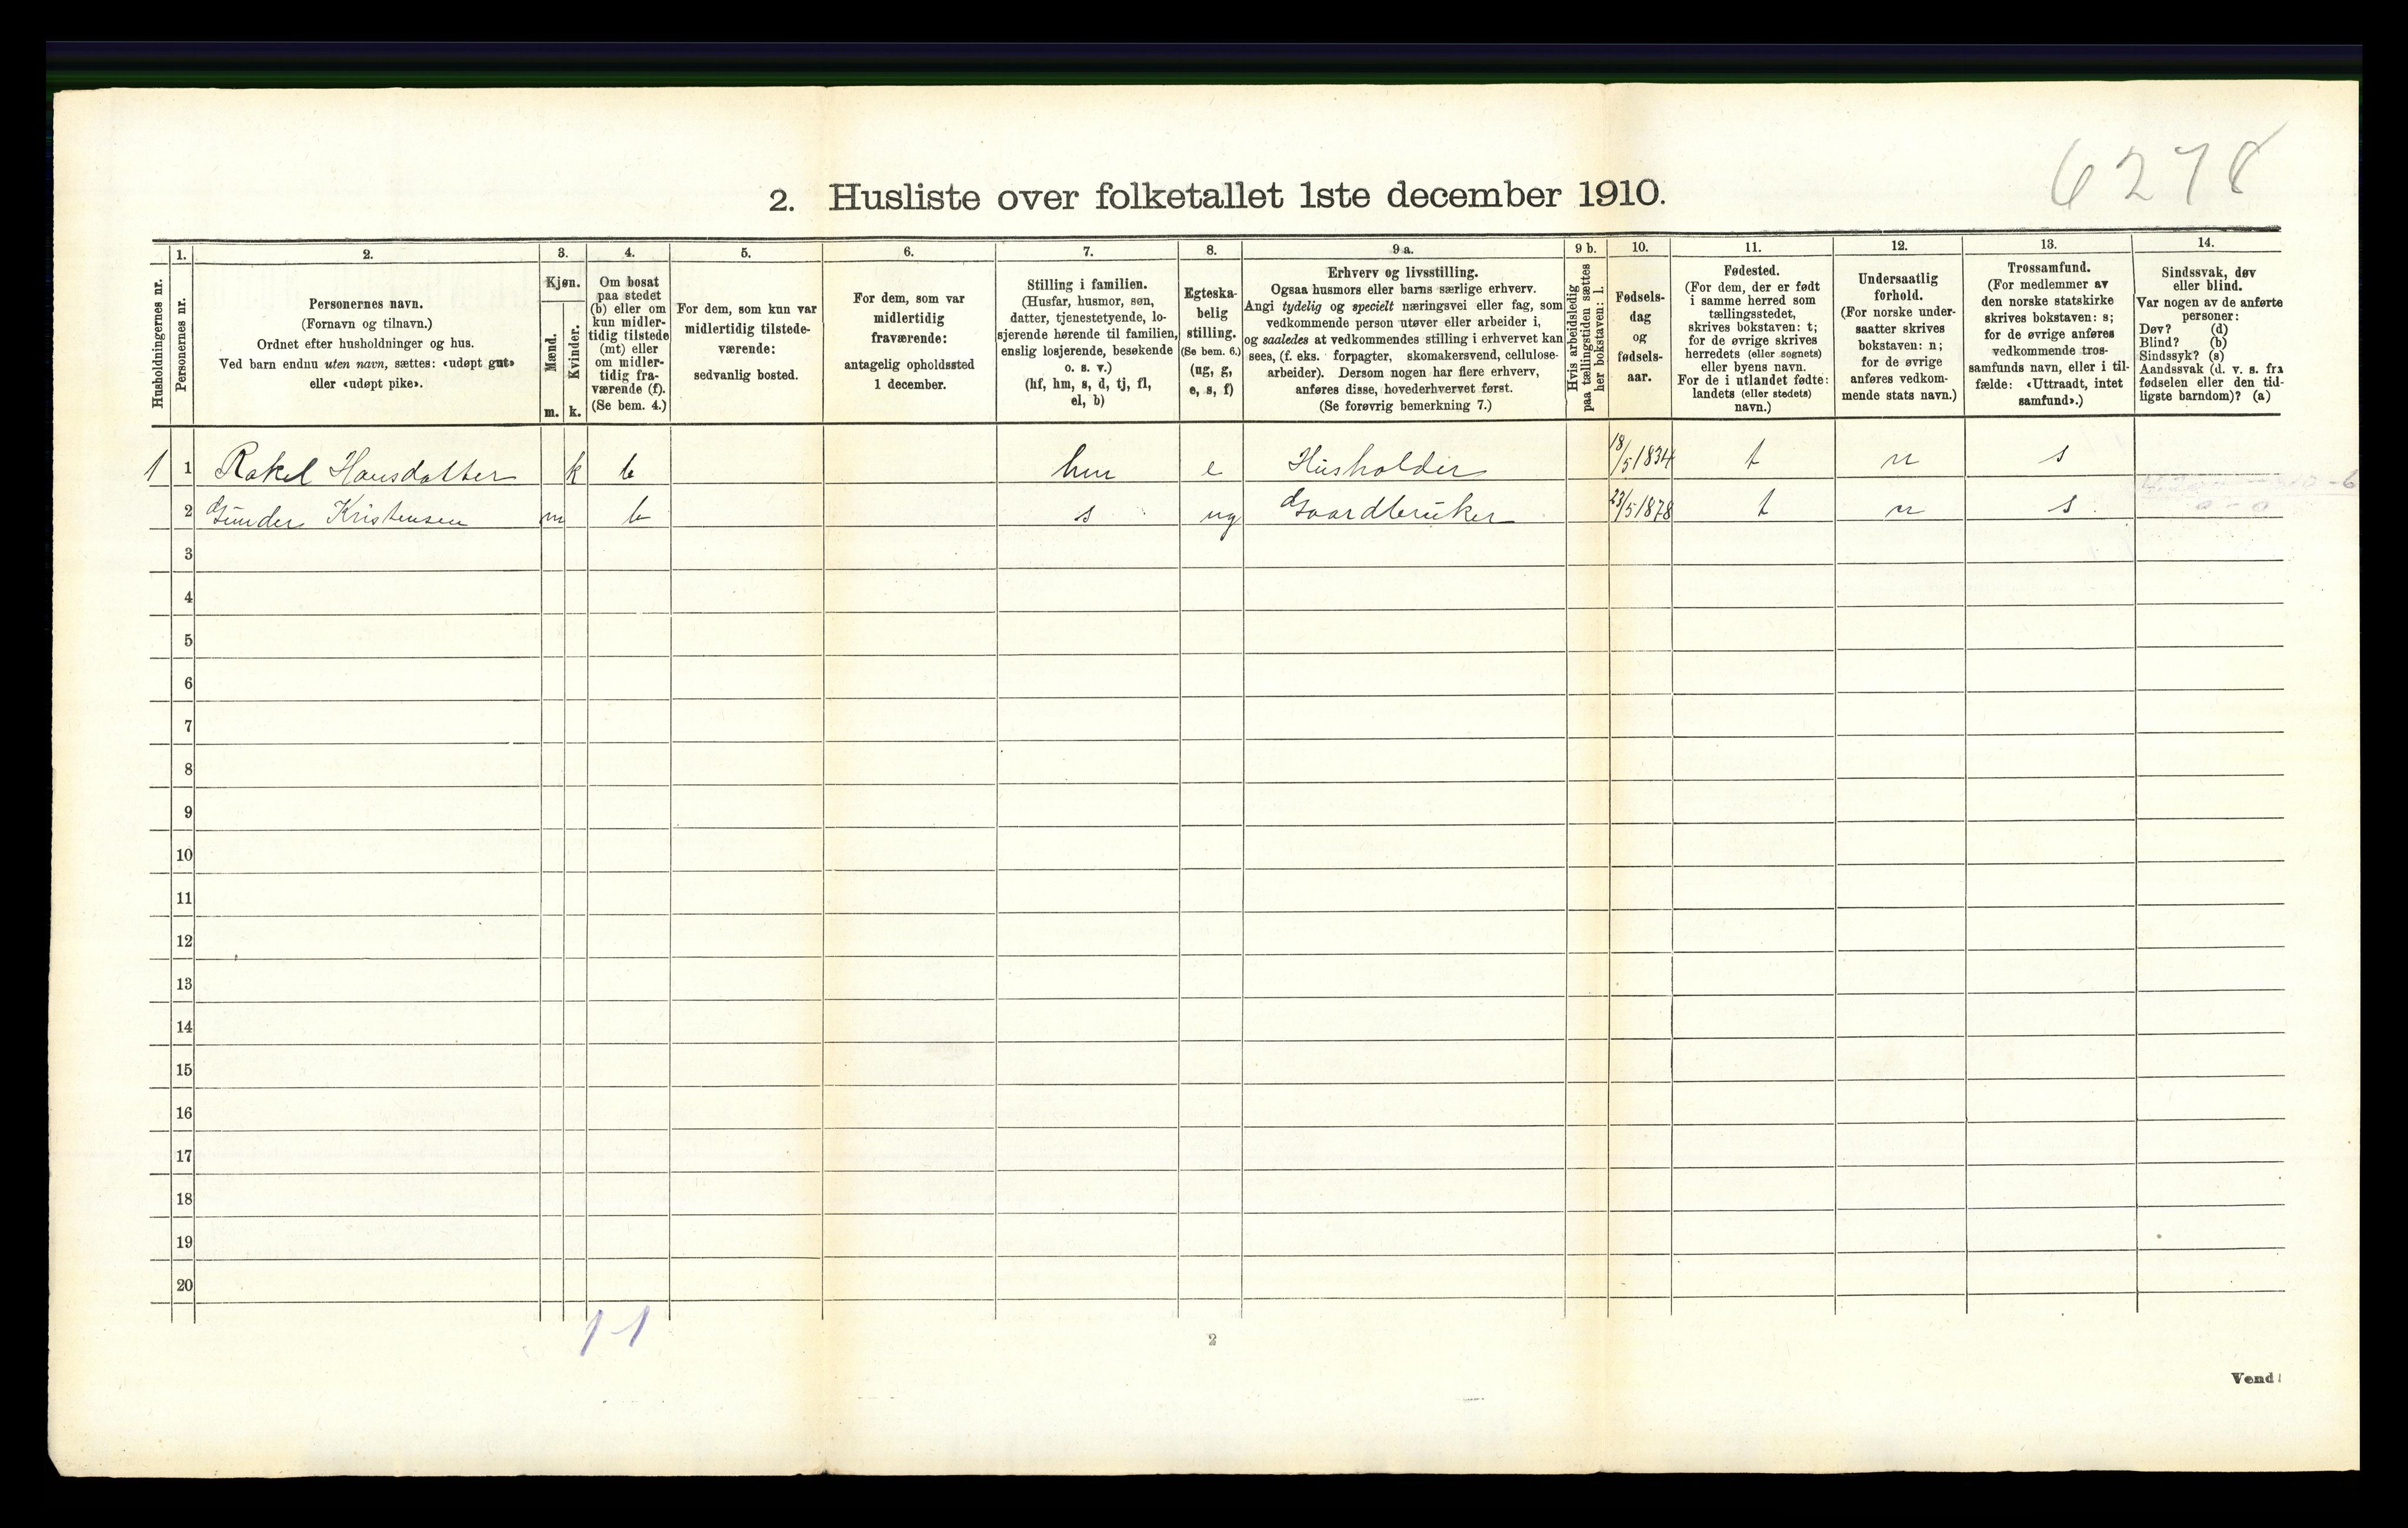 6278
2. Husliste over folketallet 1ste december 1910.
Husholdningernes nr.
1. Personernes nr.
2. Personernes navn.
(Fornavn og tilnavn.)
Ordnet efter husholdninger og hus.
Ved barn endnu uten navn, sættes: «udøpt gut»
eller «udøpt pike».
3. Kjøn.
Mænd. m.
Kvinder. k.
4. Om bosat
paa stedet
(b) eller om
kun midler-
tidig tilstede
(mt) eller
om midler-
tidig fra-
værende (f).
(Se bem. 4.)
5. For dem, som kun var
midlertidig tilstede-
værende:
sedvanlig bosted.
6. For dem, som var
midlertidig
fraværende:
antagelig opholdssted
1 december.
7. Stilling i familien.
(Husfar, husmor, søn,
datter, tjenestetyende, lo-
sjerende hørende til familien,
enslig losjerende, besøkende
o. s. v.)
(hf, hm, s, d, tj, fl,
el, b)
8. Egteska-
belig
stilling.
(Se bem. 6.)
(ug, g,
e, s, f)
9 a. Erhverv og livsstilling.
Ogsaa husmors eller barns særlige erhverv.
Angi tydelig og specielt næringsvei eller fag, som
vedkommende person utøver eller arbeider i,
og saaledes at vedkommendes stilling i erhvervet kan
sees, (f. eks. forpagter, skomakersvend, cellulose-
arbeider). Dersom nogen har flere erhverv,
anføres disse, hovederhvervet først.
(Se forøvrig bemerkning 7.)
9 b. Hvis arbeidsledig
paa tællingstiden sættes
her bokstaven: l.
10. Fødsels-
dag
og
fødsels-
aar.
11. Fødested.
(For dem, der er født
i samme herred som
tællingsstedet,
skrives bokstaven: t;
for de øvrige skrives
herredets (eller sognets)
eller byens navn.
For de i utlandet fødte:
landets (eller stedets)
navn.)
12. Undersaatlig
forhold.
(For norske under-
saatter skrives
bokstaven: n;
for de øvrige
anføres vedkom-
mende stats navn.)
13. Trossamfund.
(For medlemmer av
den norske statskirke
skrives bokstaven: s;
for de øvrige anføres
vedkommende tros-
samfunds navn, eller i til-
fælde: «Uttraadt, intet
samfund».)
14. Sindssvak, døv
eller blind.
Var nogen av de anførte
personer:
Døv? (d)
Blind? (b)
Sindssyk? (s)
Aandssvak (d. v. s. fra
fødselen eller den tid-
ligste barndom)? (a)
1 1 Rakel Hansdatter k b hm e Husholder 18/5 1834 t n s
2 Gunder Kristensen m b s ug Gaardbruker 23/5 1878 t n s
3
4
5
6
7
8
9
10
11
12
13
14
15
16
17
18
19
20
1-1
2
Vend!